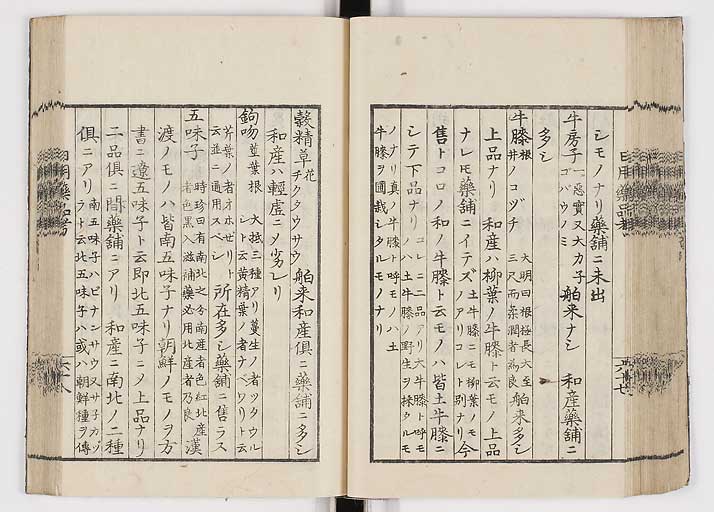 シモノナリ藥舗ニ未出
牛房子 一惡實又大力子 ゴバウノミ 舶来ナシ 和産藥舗ニ
多シ
牛膝 根 井ノコヅチ 大明曰根極長大至 三尺而柔潤者為良 舶来多シ
上品ナリ 和産ハ柳葉ノ牛膝ト云モノ上品
ナレ𪜈藥舗ニイテズ 土牛膝ニモ柳葉ノモ ノアリコレト別ナリ 今
售トコロノ和ノ牛膝ト云モノハ皆土牛膝ニ
シテ下品ナリ コレニ二品アリ大牛膝ト呼モ ノハ土牛膝ノ野生ヲ採タルモ
ノナリ真ノ牛膝ト呼モノハ土
牛膝ヲ圃栽シタルモノナリ
穀精草 花 チクタウサウ 舶来和産俱ニ藥舗ニ多シ
和産ハ輕虚ニノ劣レリ
鉤吻 莖葉根 大抵三種アリ蔓生ノ者ツタウル シト云黄精葉ノ者ナベワリト云
芹葉ノ者オホゼリト 云並ニ通用スベシ 所在多シ藥舗ニ售ラス
五味子 時珍曰有南北之分南産者色紅北産 者色黒入滋補藥必用北産者乃良 漢
渡ノモノハ皆南五味子ナリ朝鮮ノモノヲ方
書ニ遼五味子ト云即北五味子ニノ上品ナリ
二品俱ニ間藥舗ニアリ 和産ニ南北ノ二種
俱ニアリ 南五味子ハビナンサウ又サネカヅ ラト云北五味子ハ或ハ朝鮮種ヲ傳
日用藥品考
六十八
日用藥品考
六十七